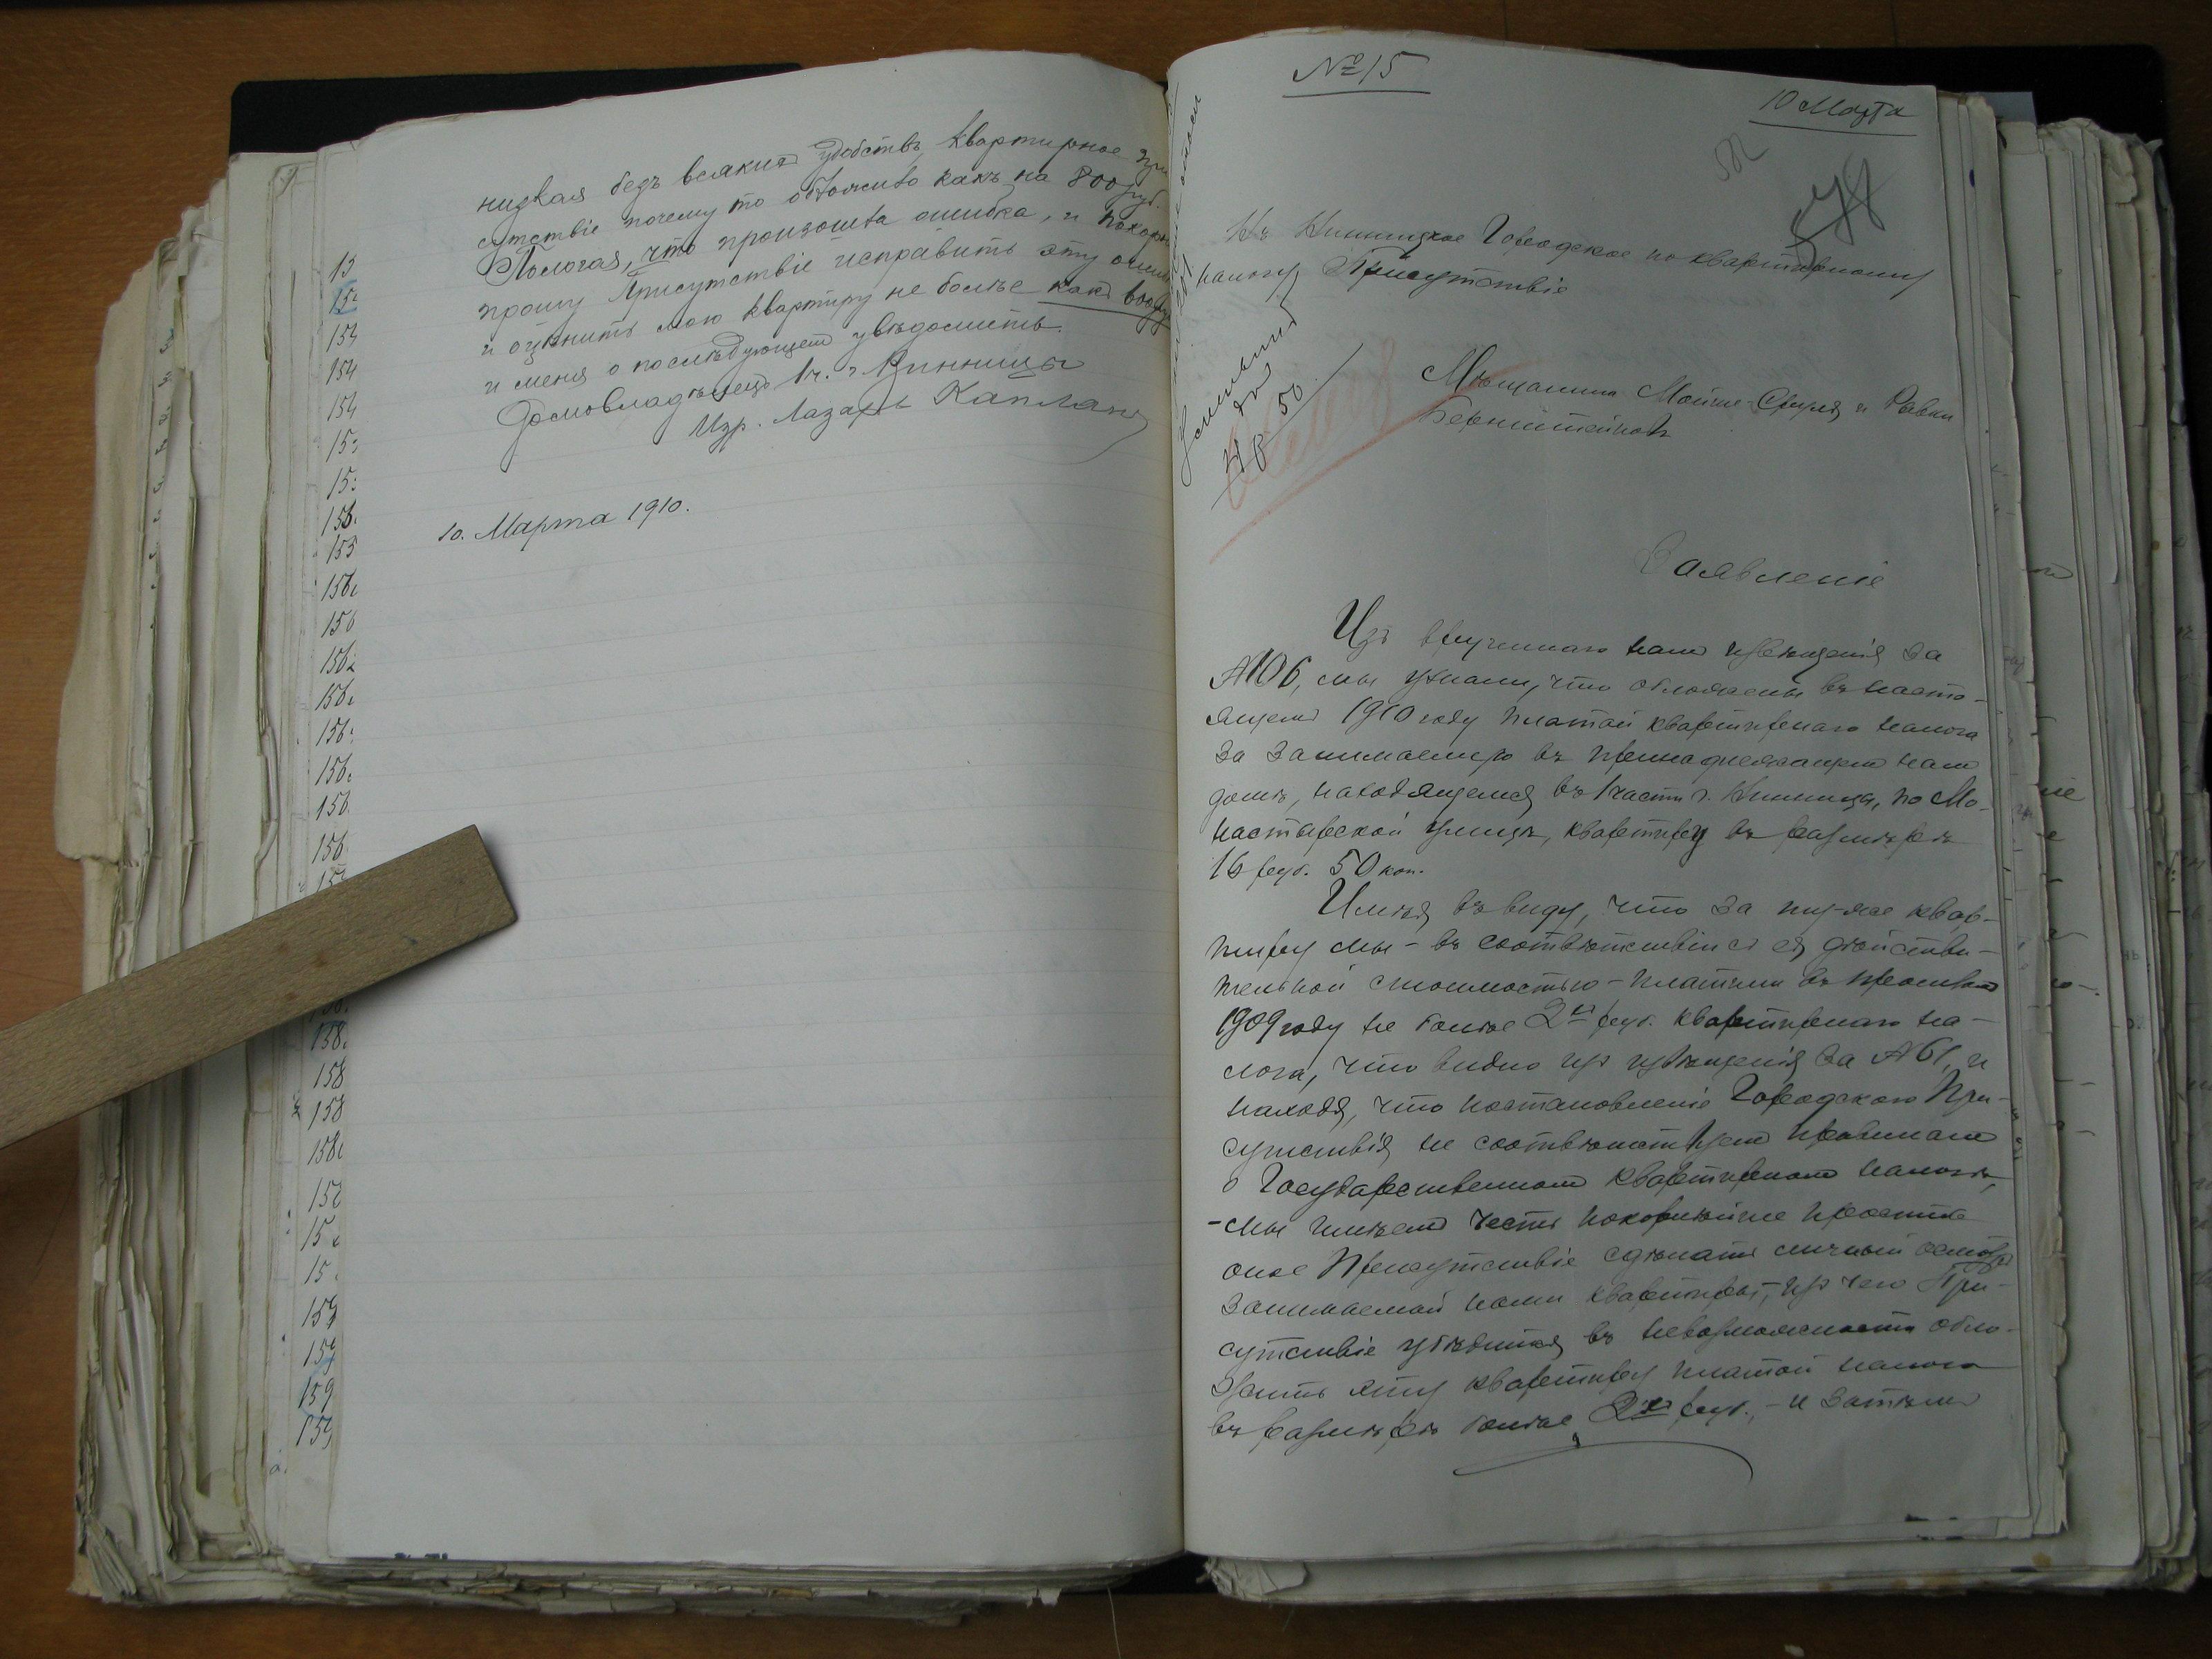 низкая безъ всякихъ удобствъ, квартирное при
сутствіе почему то обложило какъ на 800 руб.
Пологая, что произошла ошибка, и покор
прошу Присутствіе исправить эту ошиб
и оцѣнить мою квартиру не болѣе какъ
и меня о послѣдующемъ увѣдомить.
Домовладѣлецъ 1ч. г. Винницы
Изр. Лазарь Капланъ
10. Марта 1910.
№ 15
10 Марта
Въ Винницкое Городское по квартирному
налогу Присутствіе
Мѣщанъ Мойше-Сруля и Ривки
Бернштейновъ
Заявленіе
Изъ врученнаго намъ извѣщенія за
№106, мы узнали, что обложены въ насто-
ящемъ 1910 году платой квартирнаго налога
за занимаемую въ принадлежащемъ намъ
домѣ, находящемся въ 1 части г. Винницы, по Мо-
настырской улицѣ, квартиру въ размѣрѣ
16 руб. 50 коп.
Имѣя въ виду, что за ту-же квар-
тиру мы - въ соотвѣтствіи съ ея дѣйстви-
тельной стоимостью - платили въ прошломъ
1909 году не болѣе 2хъ руб. квартирнаго на-
лога, что видно изъ извѣщенія за №61, и
находя, что постановленіе Городского При-
сутствія не соотвѣтствуетъ правиламъ
о Государственномъ квартирномъ налогѣ,
- мы имѣемъ честь покорнѣйше просить
оное Присутствіе сдѣлать личный осмотръ
занимаемой нами квартиры, изъ чего При-
сутствіе убѣдится въ невозможности обло-
жить эту квартиру платой налога
въ размѣрѣ болѣе 2хъ руб., - и затѣмъ